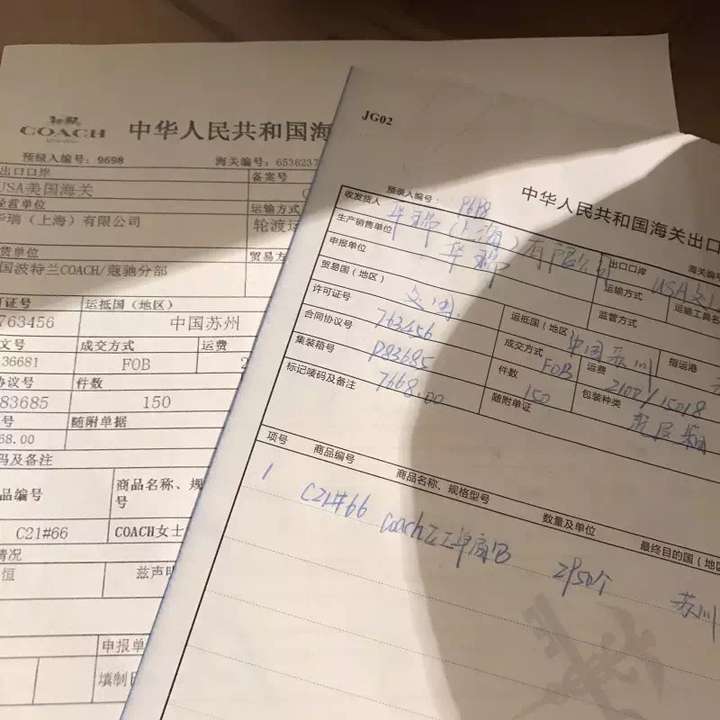 COACH
中华人民共和国海
预录入编号：9698 海关编号：6536237
出口口岸 备案号
USA美国海关
经营单位 运输方式
华瑞（上海）有限公司 轮渡运
货单位 贸易方
国波特兰COACH/蔻驰分部
可证号 运抵国（地区）
763456 中国苏州
文号 成交方式 运费
36681 FOB 2
协议号 件数
83685 150
号 随附单据
68.00
码及备注
品编号 商品名称、规
号
C21#66 COACH女士
情况
恒 兹声明
申报单
填制日
JG02
中华人民共和国海关出口
预录入编号：
收发货人 出口口岸 海关编
华瑞（上海）有限公司 USA
生产销售单位 运输方式 运输工具名
华瑞
申报单位 监管方式
贸易国（地区） 运抵国（地区 指运港
中国苏州
许可证号 成交方式 运费
763456 FOB
合同协议号 件数 包装种类
D83685 150
集装箱号 随附单证
7668.00
标记唛码及备注
项号 商品编号 商品名称、规格型号 数量及单位 最终目的国（地区
1 C21#66 coach 苏州